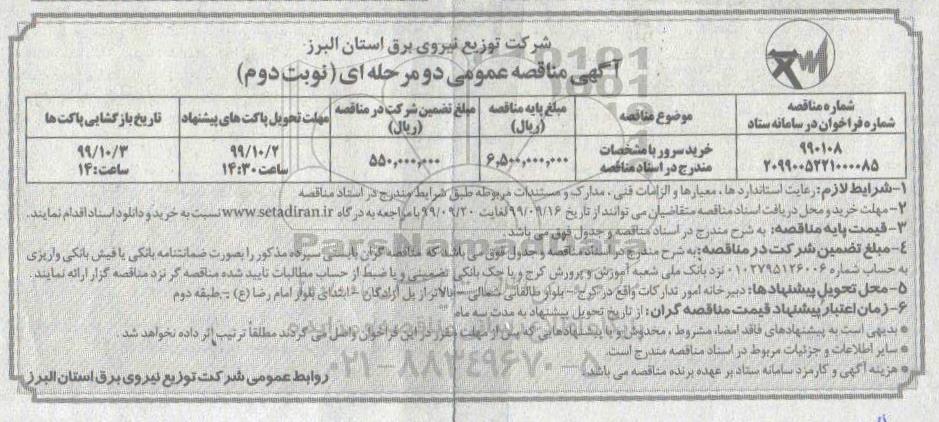 شرکت توزیع نیروی برق استان البرز
آگهی مناقصه عمومی دو مرحله ای (نوبت دوم)
شماره مناقصه
شماره فراخوان در سامانه ستاد
موضوع مناقصه
مبلغ پایه مناقصه
(ریال)
مبلغ تضمین شرکت در مناقصه
(ریال)
مهلت تحویل پاکت های پیشنهاد
تاریخ بازگشایی پاکت ها
۹۹۰۱۰۸
۲۰۹۹۰۰۵۲۲۱۰۰۰۰۸۵
خرید سرور با مشخصات
مندرج در اسناد مناقصه
۶,۵۰۰,۰۰۰,۰۰۰
۵۵۰,۰۰۰,۰۰۰
۹۹/۱۰/۲
ساعت ۱۴:۳۰
۹۹/۱۰/۳
ساعت: ۱۴
۱-شرایط لازم: رعایت استاندارد ها ، معیارها و الزامات فنی ، مدارک و مستندات مربوطه طبق شرایط مندرج در اسناد مناقصه
۲- مهلت خرید و محل دریافت اسناد مناقصه متقاضیان می توانند از تاریخ ۹۹/۰۹/۱۶ لغایت ۹۹/۰۹/۲۰ با مراجعه به درگاه www.setadiran.ir نسبت به خرید و دانلود اسناد اقدام نمایند.
۳-قیمت پایه مناقصه: به شرح مندرج در اسناد مناقصه و جدول فوق می باشد.
۴- مبلغ تضمین شرکت در مناقصه: به شرح مندرج در اسناد مناقصه و جدول فوق می باشد که مناقصه گران بایستی سپرده مذکور را بصورت ضمانتنامه بانکی یا فیش بانکی واریزی
به حساب شماره ۰۱۰۲۷۹۵۱۲۶۰۰۶ نزد بانک ملی شعبه آموزش و پرورش کرج و یا چک بانکی تضمینی و یا ضبط از حساب مطالبات تایید شده مناقصه گر نزد مناقصه گزار ارائه نمایند.
۵-محل تحویل پیشنهادها: دبیرخانه امور تدارکات واقع در کرج - بلوار طالقانی شمالی - بالاتر از پل آزادگان - ابتدای بلوار امام رضا (ع) - طبقه دوم
۶-زمان اعتبار پیشنهاد قیمت مناقصه گران: از تاریخ تحویل پیشنهاد به مدت سه ماه
* بدیهی است به پیشنهادهای فاقد امضاء، مشروط ، مخدوش و یا پیشنهادهایی که پس از مهلت مقرر در این فراخوان واصل می گردند مطلقا ترتیب اثر داده نخواهد شد .
* سایر اطلاعات و جزئیات مربوط در اسناد مناقصه مندرج است.
* هزینه آگهی و کارمزد سامانه ستاد بر عهده برنده مناقصه می باشد.
روابط عمومی شرکت توزیع نیروی برق استان البرز
ParsNamadData
۰۲۱-۸۸۳۴۹۶۷۰-۵